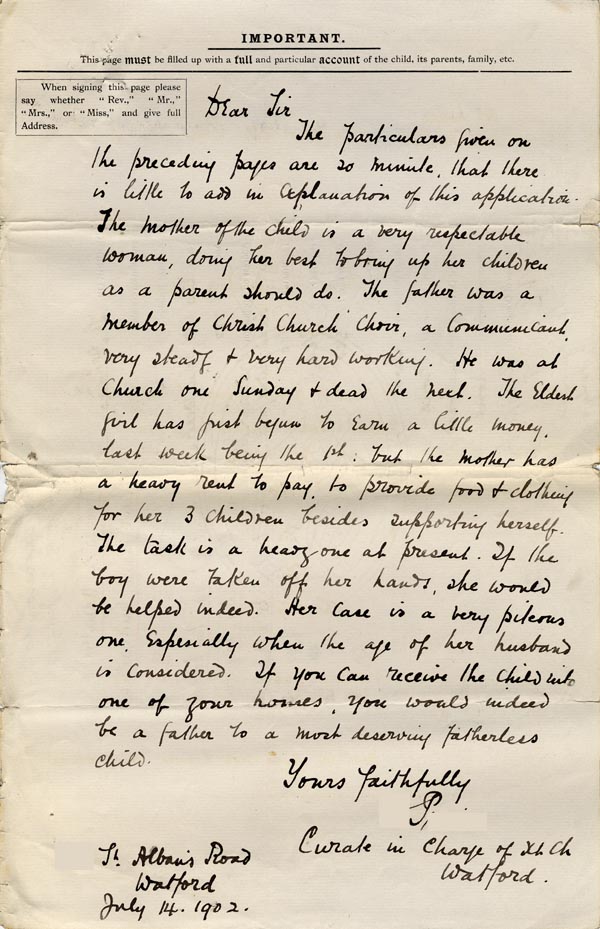 IMPORTANT.
This page must be filled up with a full and particular account of the child, its parents, family, etc.
When signing this page please
say whether "Rev.," "Mr.,"
"Mrs.," or "Miss," and give full
Address.
Dear Sir
The particulars given on
the preceding pages are so minute, that there
is little to add in explanation of this application.
The mother of the child is a very respectable
woman, doing her best to bring up her children
as a parent should do. The father was a
member of Christ Church Choir, a Communicant,
very steady & very hard working. He was at
Church one Sunday & dead the next. The Eldest
girl has just begun to Earn a little money,
last week being the 1st: but the mother has
a heavy rent to pay, to provide food & clothing
for her 3 children besides supporting herself.
The task is a heavy one at present. If the
boy were taken off her hands, she would
be helped indeed. Her case is a very piteous
one, Espesially when the age of her husband
is considered. If you can receive the child into
one of your homes, you would indeed
be a father to a most deserving fatherless
child.
Yours faithfully
P,
Curate in Charge of Xt Ch
Watford.
St Albans Road
Watford
July 14. 1902.